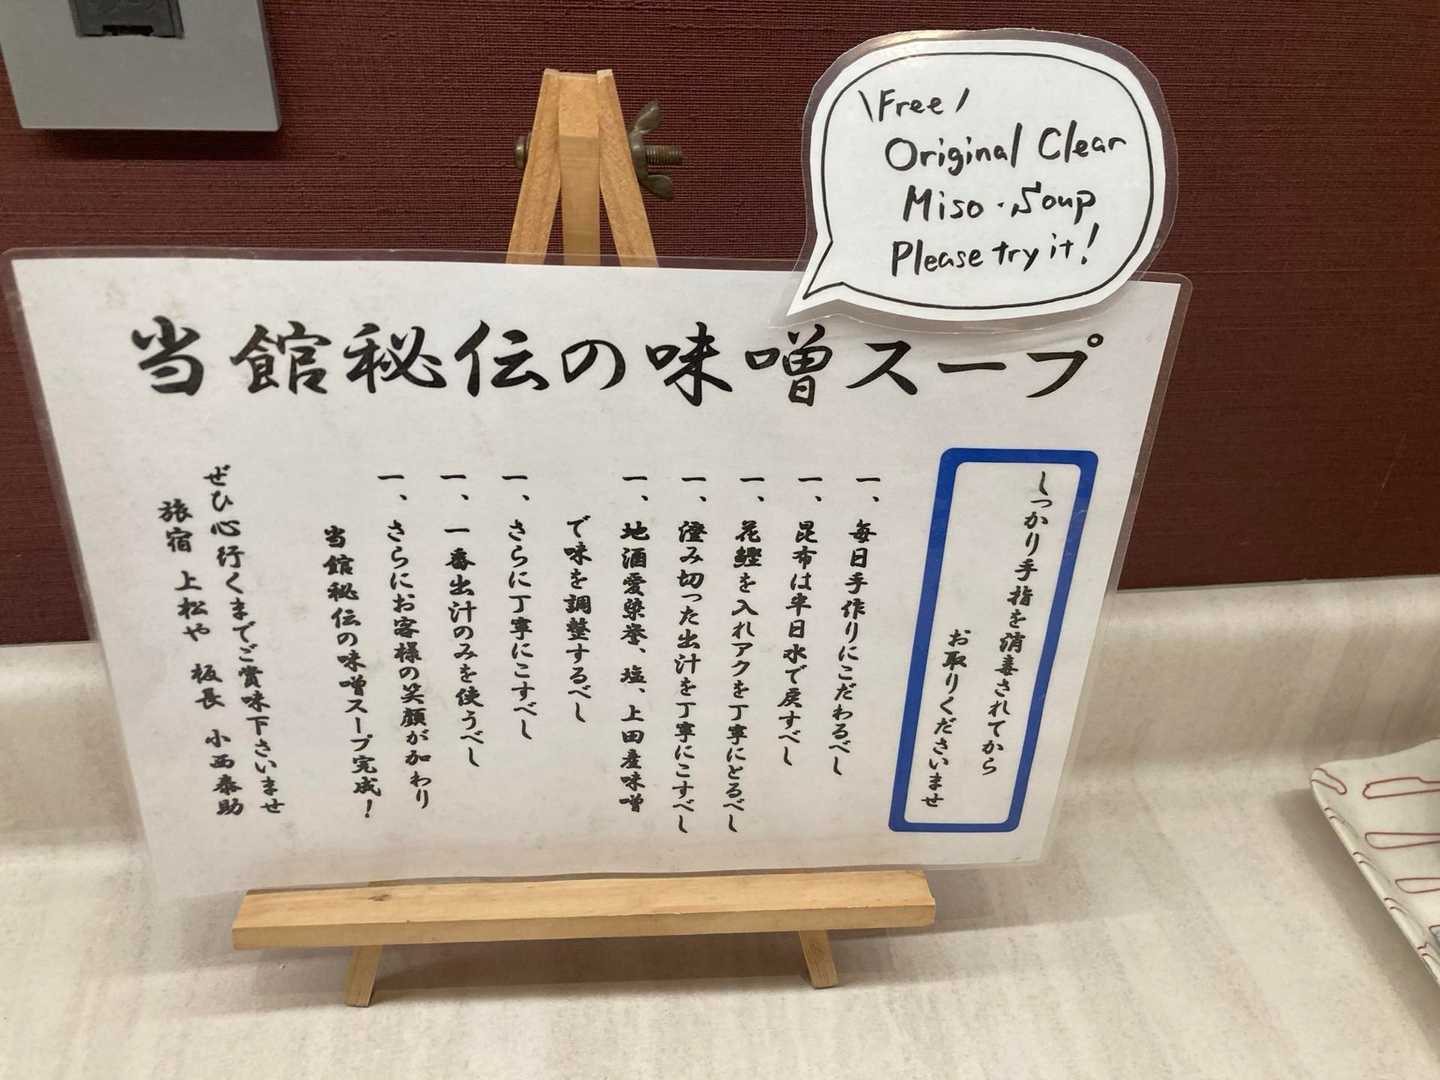 \Free/
Original Clear
Miso・Soup
Please try it!
当館秘伝の味噌スープ
しっかり手指を消毒されてから
お取りくださいませ
一、毎日手作りにこだわるべし
一、昆布は半日水で戻すべし
一、花鰹を入れアクを丁寧にとるべし
一、澄み切った出汁を丁寧にこすべし
一、地酒愛染誉、塩、上田産味噌
で味を調整するべし
一、さらに丁寧にこすべし
一、一番出汁のみを使うべし
一、さらにお客様の笑顔が加わり
当館秘伝の味噌スープ完成！
ぜひ心行くまでご賞味下さいませ
旅宿 上松や 板長 小西泰助